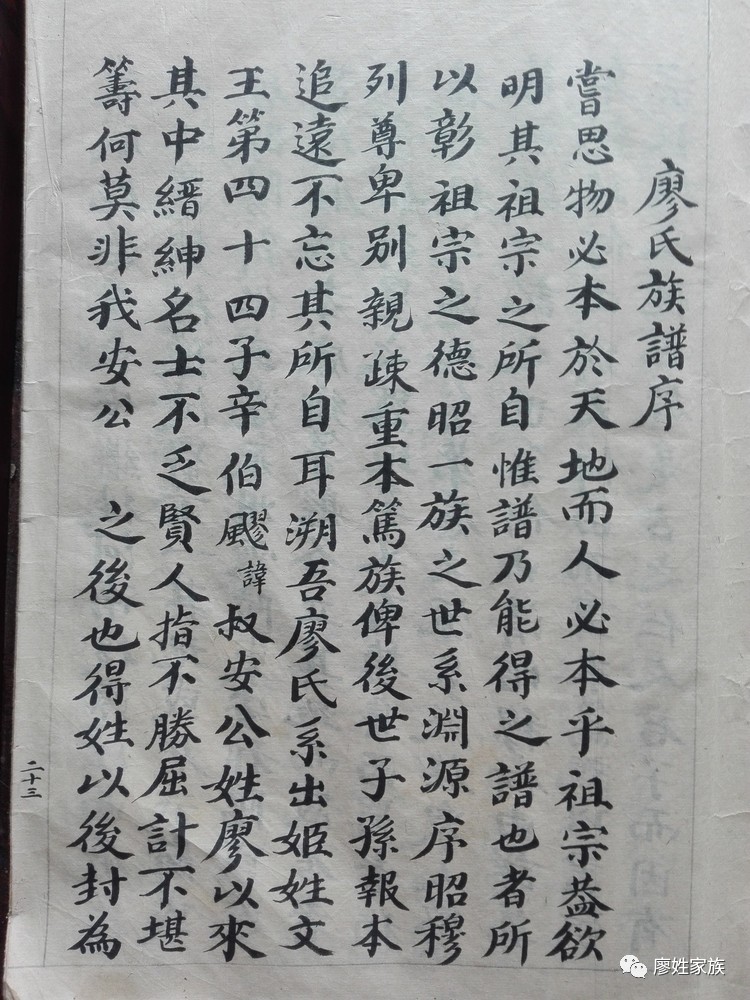 廖氏族譜序
嘗思物必本於天地而人必本乎祖宗蓋欲
明其祖宗之所自惟譜乃能得之譜也者所
以彰祖宗之德昭一族之世系淵源序昭穆
列尊卑別親疎重本篤族俾後世子孫報本
追遠不忘其所自耳溯吾廖氏系出姬姓文
王第四十四子辛伯飂諱叔安公姓廖以來
其中縉紳名士不乏賢人指不勝屈計不堪
籌何莫非我安公 之後也得姓以後封為
二十三
廖姓家族